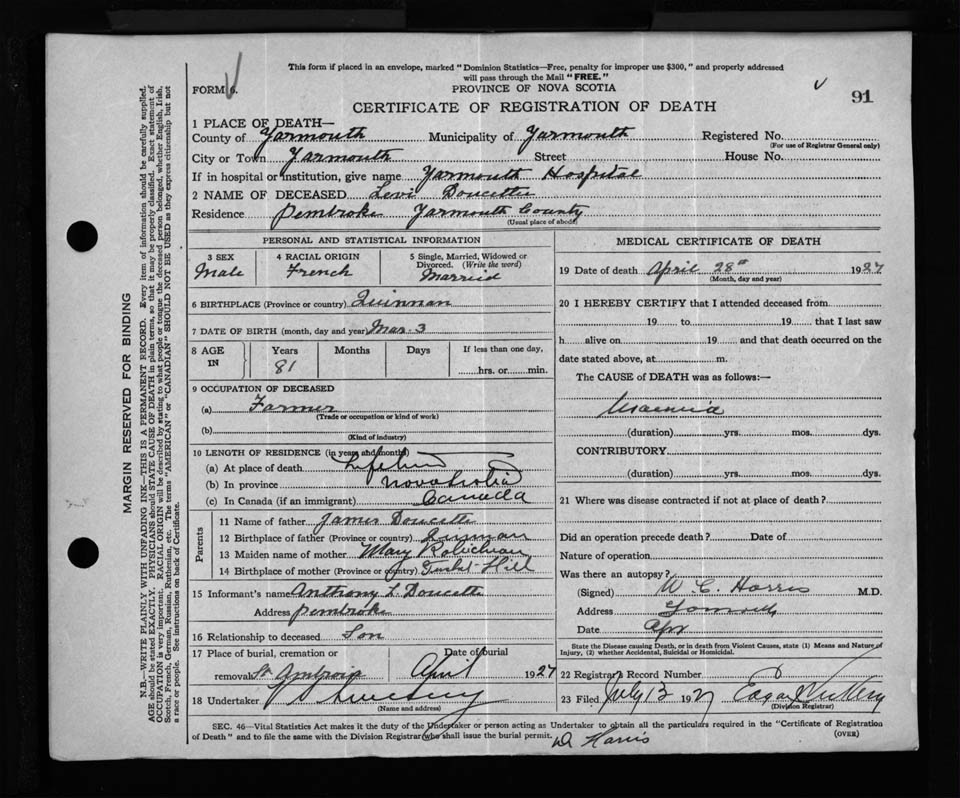 This form if placed in an envelope, marked "Dominion Statistics—Free, penalty for improper use $300," and properly addressed
will pass through the Mail "FREE."
FORM 6.
PROVINCE OF NOVA SCOTIA
91
CERTIFICATE OF REGISTRATION OF DEATH
1 PLACE OF DEATH—
County of Yarmouth Municipality of Yarmouth Registered No.
(For use of Registrar General only)
City or Town Yarmouth Street House No.
If in hospital or institution, give name Yarmouth Hospital
2 NAME OF DECEASED Levi Doucette
Residence Pembroke Yarmouth County
(Usual place of abode)
PERSONAL AND STATISTICAL INFORMATION
3 SEX 4 RACIAL ORIGIN 5 Single, Married, Widowed or Divorced. (Write the word)
Male French Married
6 BIRTHPLACE (Province or country) Quinnan
7 DATE OF BIRTH (month, day and year) Mar. 3
8 AGE IN Years Months Days If less than one day,
81 hrs. or min.
9 OCCUPATION OF DECEASED
(a) Farmer
(Trade or occupation or kind of work)
(b)
(Kind of industry)
10 LENGTH OF RESIDENCE (in years and months)
(a) At place of death Lifetime
(b) In province Nova Scotia
(c) In Canada (if an immigrant) Canada
Parents
11 Name of father James Doucette
12 Birthplace of father (Province or country) Quinan
13 Maiden name of mother Mary Robichau
14 Birthplace of mother (Province or country) Tusket Hill
15 Informant's name Anthony L. Doucette
Address Pembroke
16 Relationship to deceased Son
17 Place of burial, cremation or Date of burial
removal St Ambrois April 1927
18 Undertaker V S Sweeny
(Name and address)
MEDICAL CERTIFICATE OF DEATH
19 Date of death April 28th 1927
(Month, day and year)
20 I HEREBY CERTIFY that I attended deceased from
19 to 19 that I last saw
h alive on 19 and that death occurred on the
date stated above, at m.
The CAUSE of DEATH was as follows:—
Uraemia
(duration) yrs. mos. dys.
CONTRIBUTORY
(duration) yrs. mos. dys.
21 Where was disease contracted if not at place of death?
Did an operation precede death? Date of
Nature of operation
Was there an autopsy?
(Signed) W. C. Harris M.D.
Address Yarmouth
Date Apr
State the Disease causing Death, or in death from Violent Causes, state (1) Means and Nature of
Injury, (2) whether Accidental, Suicidal or Homicidal.
22 Registrar's Record Number
23 Filed July 13 1927 Edgar
(Division Registrar)
SEC. 46—Vital Statistics Act makes it the duty of the Undertaker or person acting as Undertaker to obtain all the particulars required in the "Certificate of Registration
of Death" and to file the same with the Division Registrar who shall issue the burial permit.
(OVER)
Dr Harris
MARGIN RESERVED FOR BINDING
N.B.—WRITE PLAINLY WITH UNFADING INK—THIS IS A PERMANENT RECORD. Every item of information should be carefully supplied.
AGE should be stated EXACTLY. PHYSICIANS should STATE CAUSE OF DEATH in plain terms, so that it may be properly classified. Exact statement of
OCCUPATION is very important. RACIAL ORIGIN will be described by stating to what people or tongue the deceased person belonged, whether English, Irish,
Scotch, French, German, Russian, Ruthenian, etc. The terms "AMERICAN" or "CANADIAN" SHOULD NOT BE USED as they express citizenship but not
a race or people. See instructions on back of Certificate.